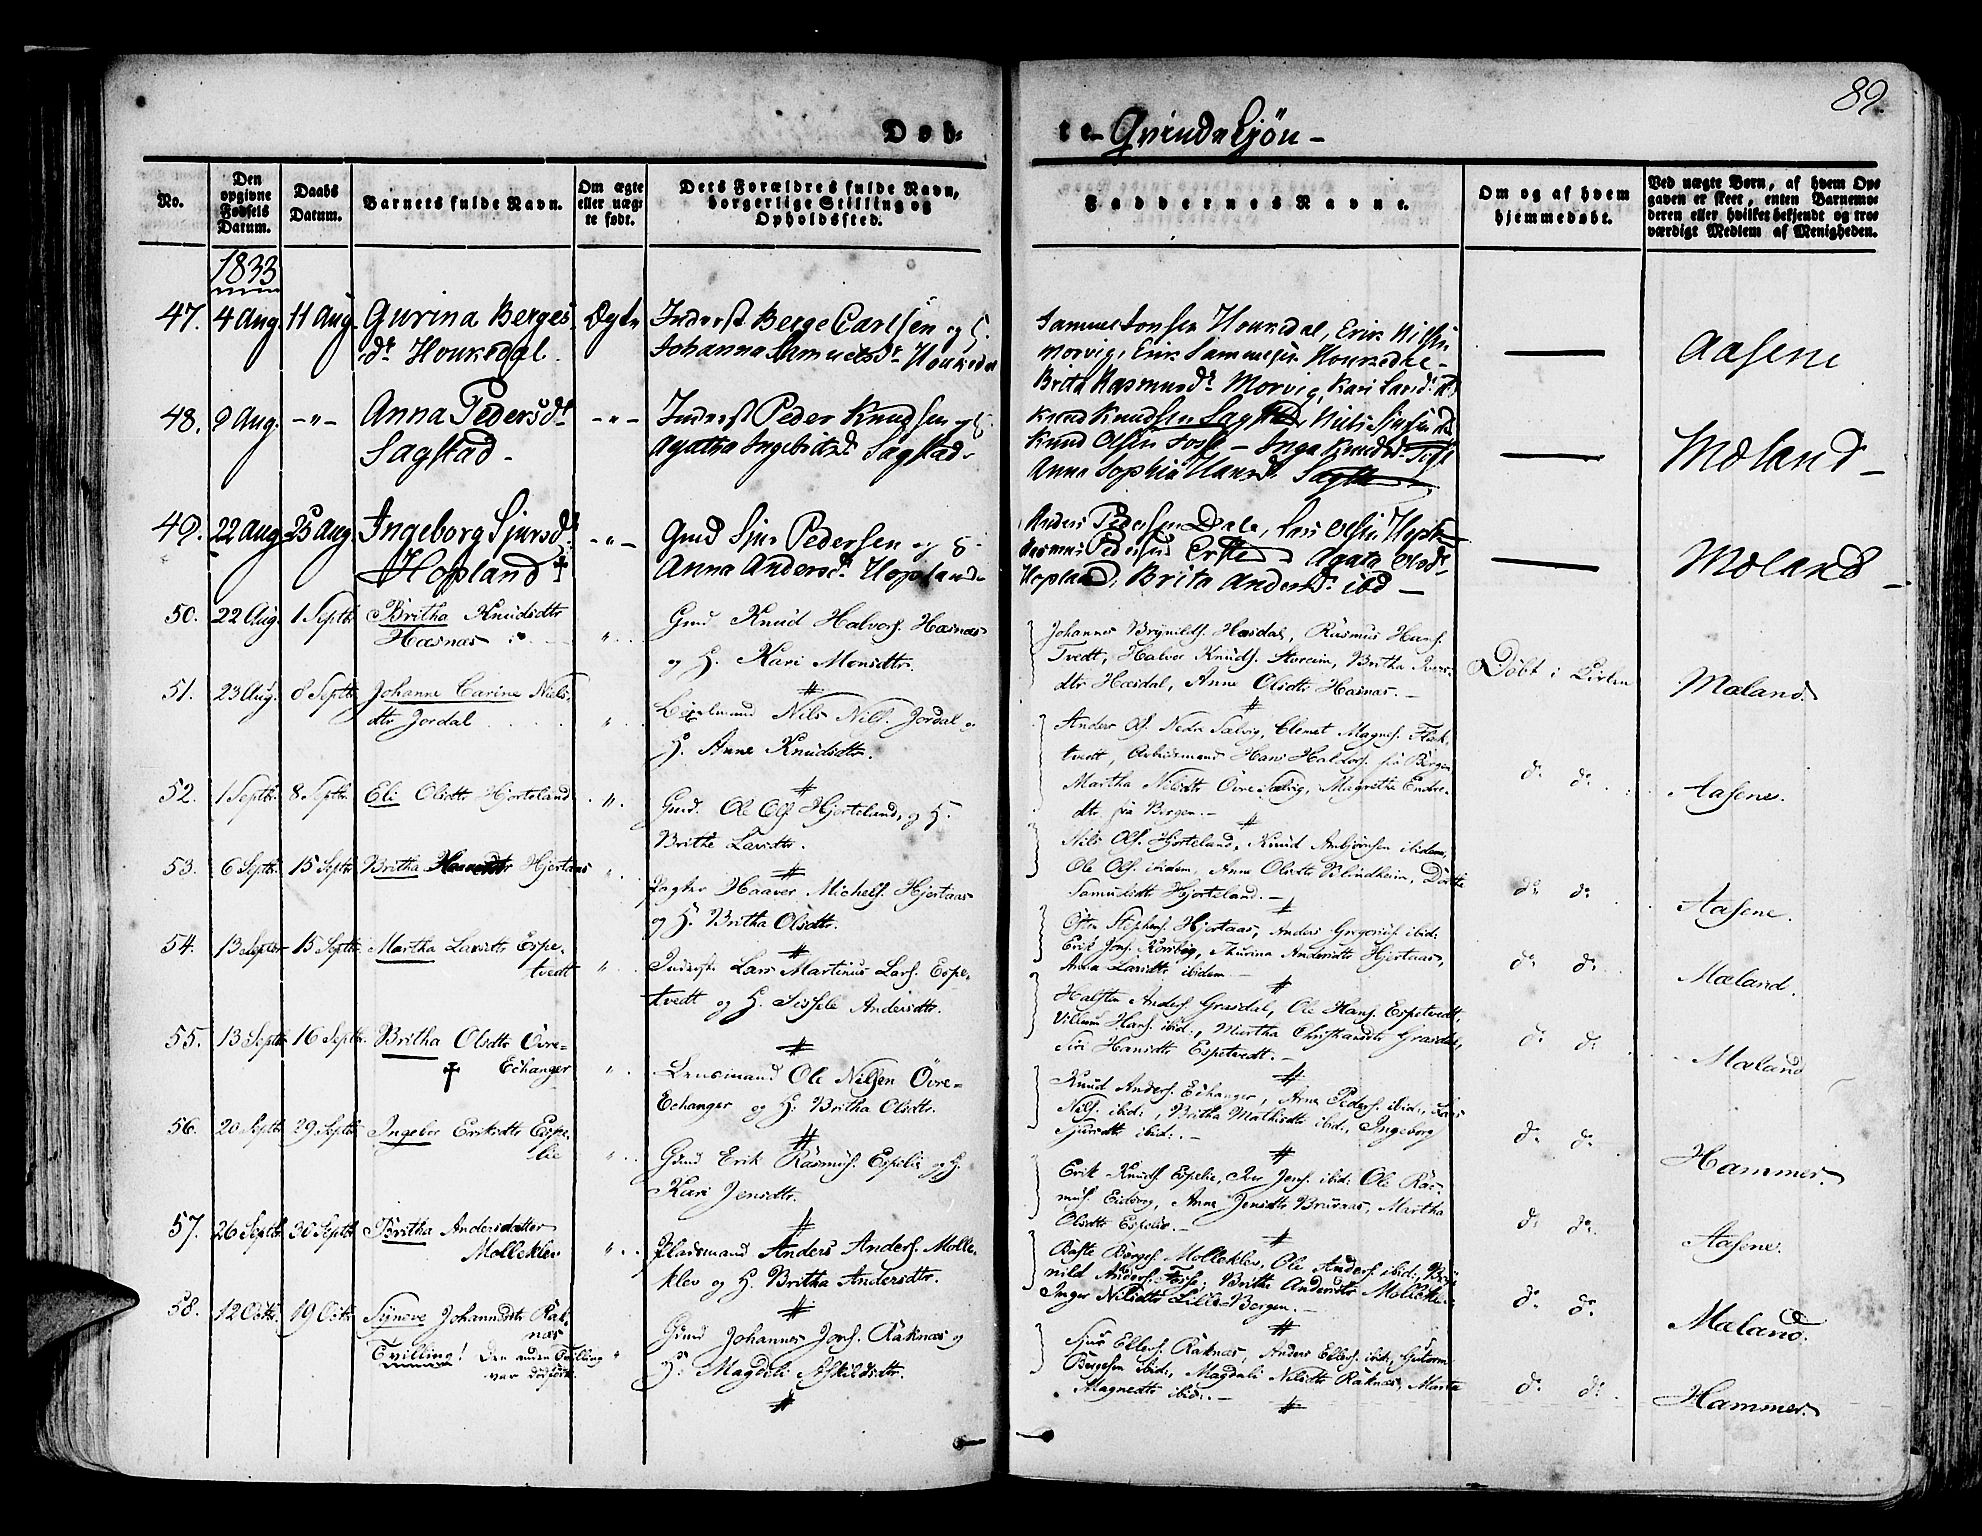 89.
Døb-
te - Qvindekjøn -
No.
Den opgivne Fødsels Datum.
Daabs Datum.
Barnets fulde Navn.
Om ægte eller uægte født.
Dets Forældres fulde Navn, borgerlige Stilling og Opholdssted.
Faddernes Navne.
Om og af hvem hjemmedøbt.
Ved uægte Børn, af hvem Opgaven er skeet, enten Barnemoderen eller hvilket bekjendt og troværdigt Medlem af Menigheden.
1833
47. 4 Aug 11 Aug. Gurina Berges
dr Houkedal.
Ægte
Inderst Berge Carlsen og H.
Johanna Samuelsdr Houkedal
Samuel Jonsen Houkedal, Erik Nilsen
Morvig, Erik Sammelsen Houkedal -
Brita Rasmusdr Morvig, Kari Larsdr
Aasene
48. 9 Aug. -"- Anna Pedersdr
Sagstad -
-"-
Inderst Peder Knudsen og H.
Agatha Ingebrigtsdr Sagstad -
Knud Knudsen Sagstad, Nils Sjursen
Knud Olsen Fosse - Inga Knudsdr
Anna Sophia Hansdr
Mæland -
49. 22 Aug 25 Aug. Ingeborg Sjursdr
Hopland †
-"-
Gmd Sjur Pedersen og H.
Anna Andersdr Hopland -
Anders Pedersen Dale, Lars Olsen
Rasmus Pedersen Agata Olsdr
Hopland, Brita Andersdr ibd -
Mæland -
50. 22 Aug. 1 Septbr. Britha Knudsdtr
Hæsnæs
"
Gmd Knud Halvors. Hæsnæs
og H. Kari Monsdtr.
Johannes Brynilds. Hæsdal, Rasmus Hans.
Tvedt, Halvor Knuds. Storeim, Britha Ivers-
dtr Hæsdal, Anne Olsdtr Hæsnæs. -
Døbt i Kirken
Mæland
51. 23 Aug. 8 Septbr. Johanne Carine Niels-
dtr Jordal
"
Nils Nils. Jordal og
H. Anne Knudsdtr.
Anders Ols. Nedre Sælvig, Clemet Magnes.
tvedt, Arbeidsmand Hans Haldors. fra Bergen
Martha Nilsdtr Øvre-Sælvig, Magrethe Endre-
dtr fra Bergen. -
do do
Aasene.
52. 1 Septbr. 8 Septbr. Eli Olsdtr Hjorteland
"
Gmd. Ole Ols. Hjorteland, og H.
Britha Larsdtr.
Nils Ols. Hjorteland, Knud Anbjørnsen ibidem,
Ole Ols. ibidem, Anne Olsdtr Vikindheim, Dorthe
Samuelsdtr Hjorteland. -
do do
Aasene.
53. 6 Septbr. 15 Septbr. Britha Hjertaas
"
Haaver Michels. Hjertaas
og H. Britha Olsdtr.
Otter Stephens. Hjertaas, Anders Gregorius. ibid:
Erik Jons. Thurina Andersdtr Hjertaas,
Anna Larsdtr ibidem -
do do
Mæland.
54. 13 Septbr 15 Septbr. Martha Larsdtr Espe-
tvedt
"
Inderst. Lars Martinus Lars. Espe-
tvedt og H. Sissele Andersdtr.
Halsten Anders. Græsdal, Ole Hans. Espetvedt,
Villum Hans. ibid:, Martha Christiansdtr Græsdal,
Siri Hansdtr Espetvedt. -
do do
Mæland
55. 13 Septbr. 16 Septbr. Britha Olsdtr Øvre-
† Echanger
"
Lensmand Ole Nilsen Øvre-
Echanger og H. Britha Olsdtr.
Knud Anders. Echanger, Arne Peders. ibid:, Lars
Nils. ibid:, Britha Mathisdtr ibid:, Ingeborg
Sjursdtr ibid:. -
do do
Hammer.
56. 20 Septbr. 29 Septbr. Ingebor Eriksdtr Espe-
lie
"
Gmd Erik Rasmus. Espelie og H.
Kari Jensdtr.
Erik Knuds. Espelie, Jens. ibid: Ole Ras-
mus. Eidsvog, Anne Jensdtr Bruraas, Martha
Olsdtr Espelie. -
do do
Aasene.
57. 26 Septbr. 30 Septbr. Britha Andersdatter
Molleklev
"
Pladsmand Anders Anders. Molle-
klev og H. Britha Andersdtr.
Børges. Molleklev, Ole Anders. ibid:, Bry-
nild Anders. Fosse, Britha Andersdtr Mollekl.
Inger Nilsdtr Lille-Bergen. -
do do
Mæland.
58. 12 Octbr. 19 Octbr. Synove Johannesdtr Rak-
næs
Tvilling! Den anden Tvilling
var dødfødt.
"
Gmd Johannes Jons. Raknæs og
H. Magdeli Askildsdtr.
Sjur Ellers. Raknæs, Anders Ellers. ibid:, Guttorm
Børgesen ibid:, Magdali Nilsdtr Raknæs, Marta
Magnedtr ibid:. -
do do
Hammer.